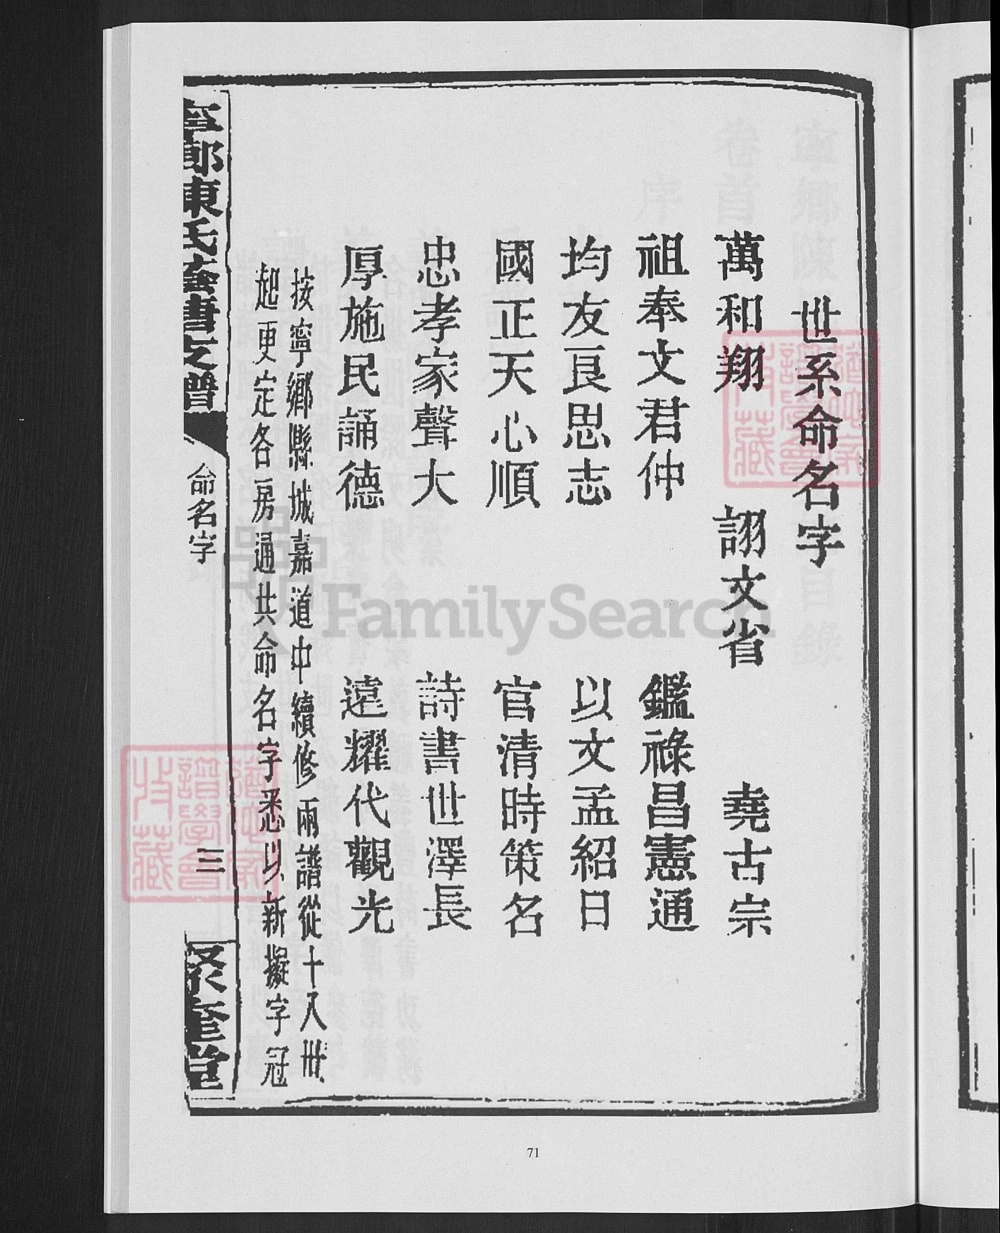 世系命名字
萬和翔 詡文省 堯古宗
祖奉文君仲 鑑祿昌憲通
均友良思志 以文孟紹日
國正天心順 官清時策名
忠孝家聲大 詩書世澤長
厚施民誦德 遠耀代觀光
按寧鄉縣城嘉道中續修兩譜從十八世
起更定各房通共命名字悉以新擬字冠
寧鄉陳氏蓝塘支譜
命名字
三
聚奎堂
FamilySearch
71